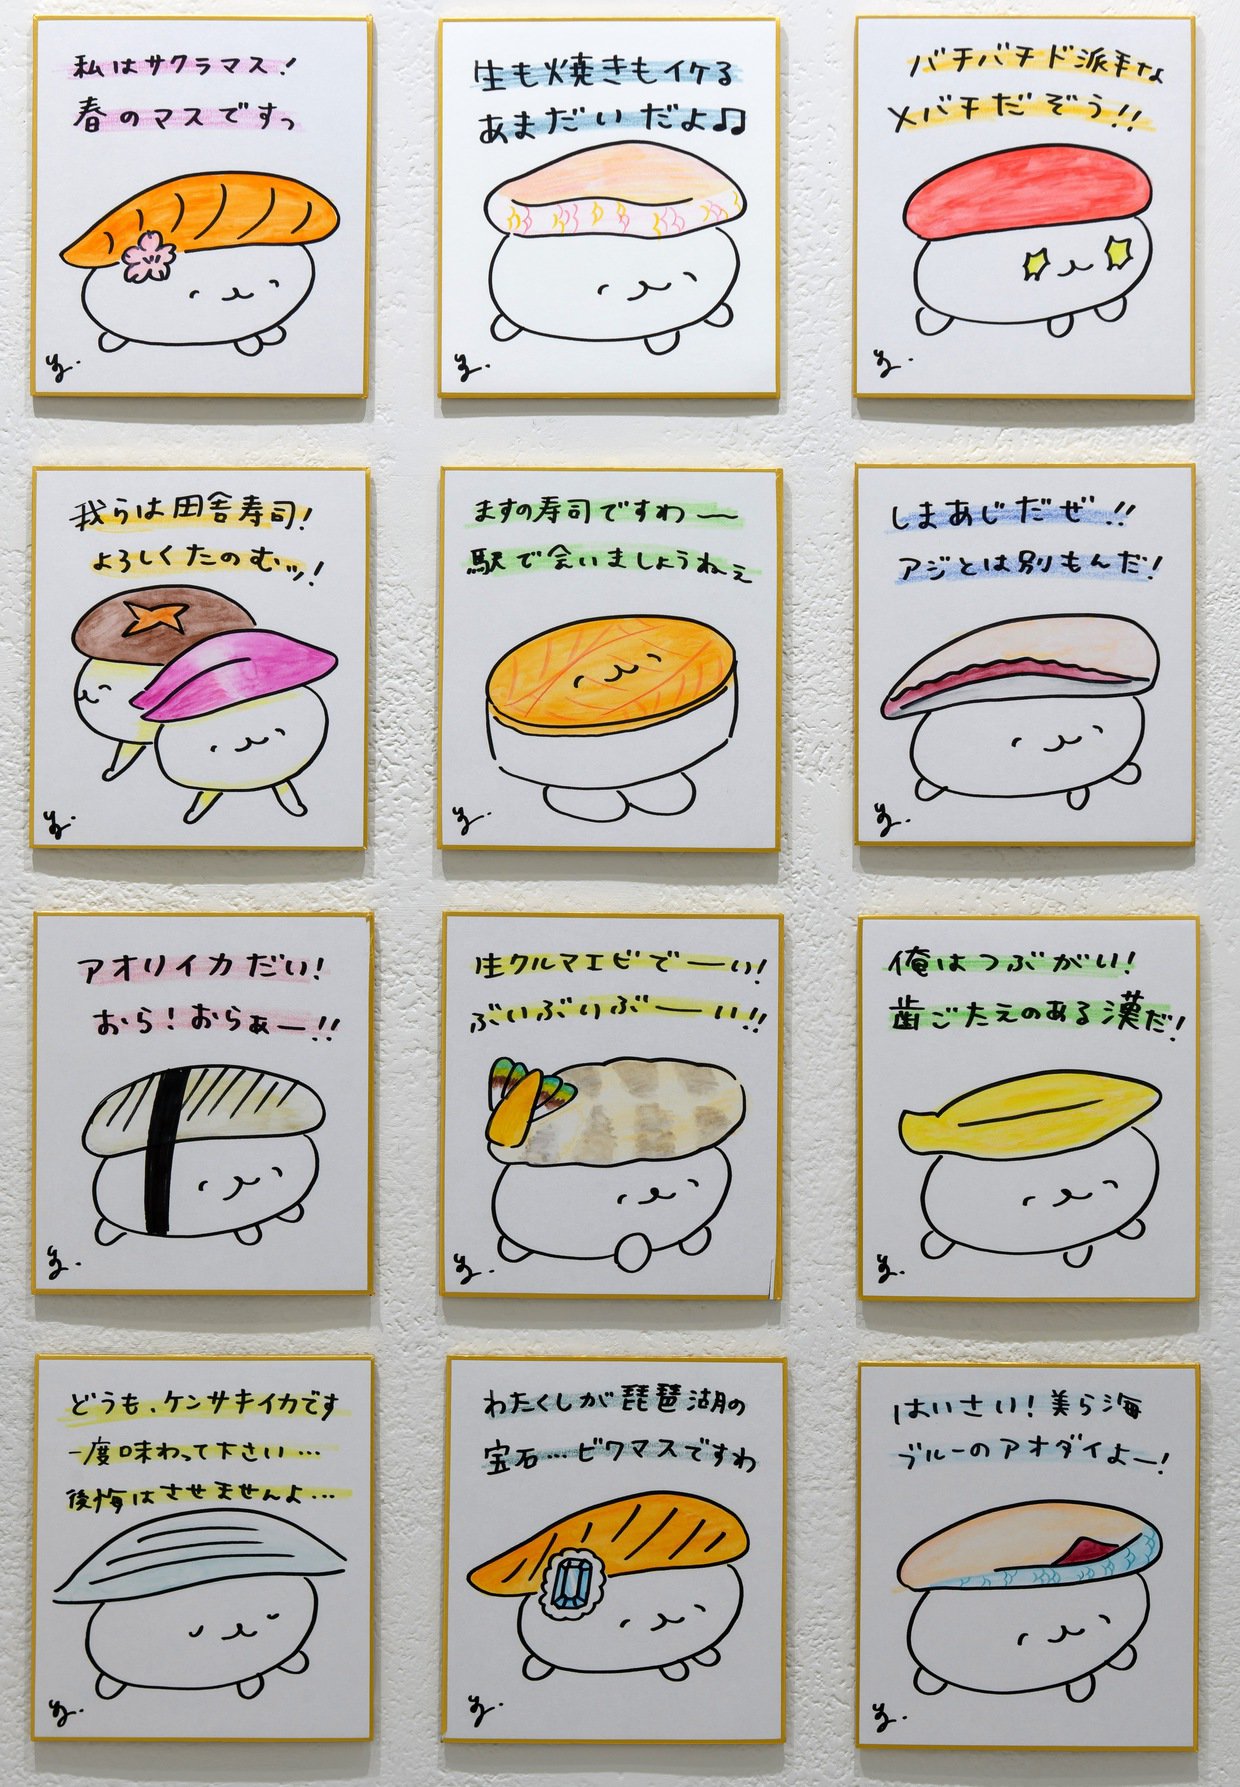 私はサクラマス!
春のマスですっ
生も焼きもイケる
あまだいだよ♫
バチバチド派手な
メバチだぞう!!
我らは田舎寿司!
よろしくたのむッ!
ますの寿司ですわ〜
駅で会いましょうねぇ
しまあじだぜ!!
アジとは別もんだ!
アオリイカだい!
おら!おらぁー!!
生クルマエビでーい!
ぶいぶりぶーい!!
俺はつぶがい!
歯ごたえのある漢だ!
どうも、ケンサキイカです
一度味わって下さい…
後悔はさせませんよ…
わたくしが琵琶湖の
宝石…ビワマスですわ
はいさい!美ら海
ブルーのアオダイよー!